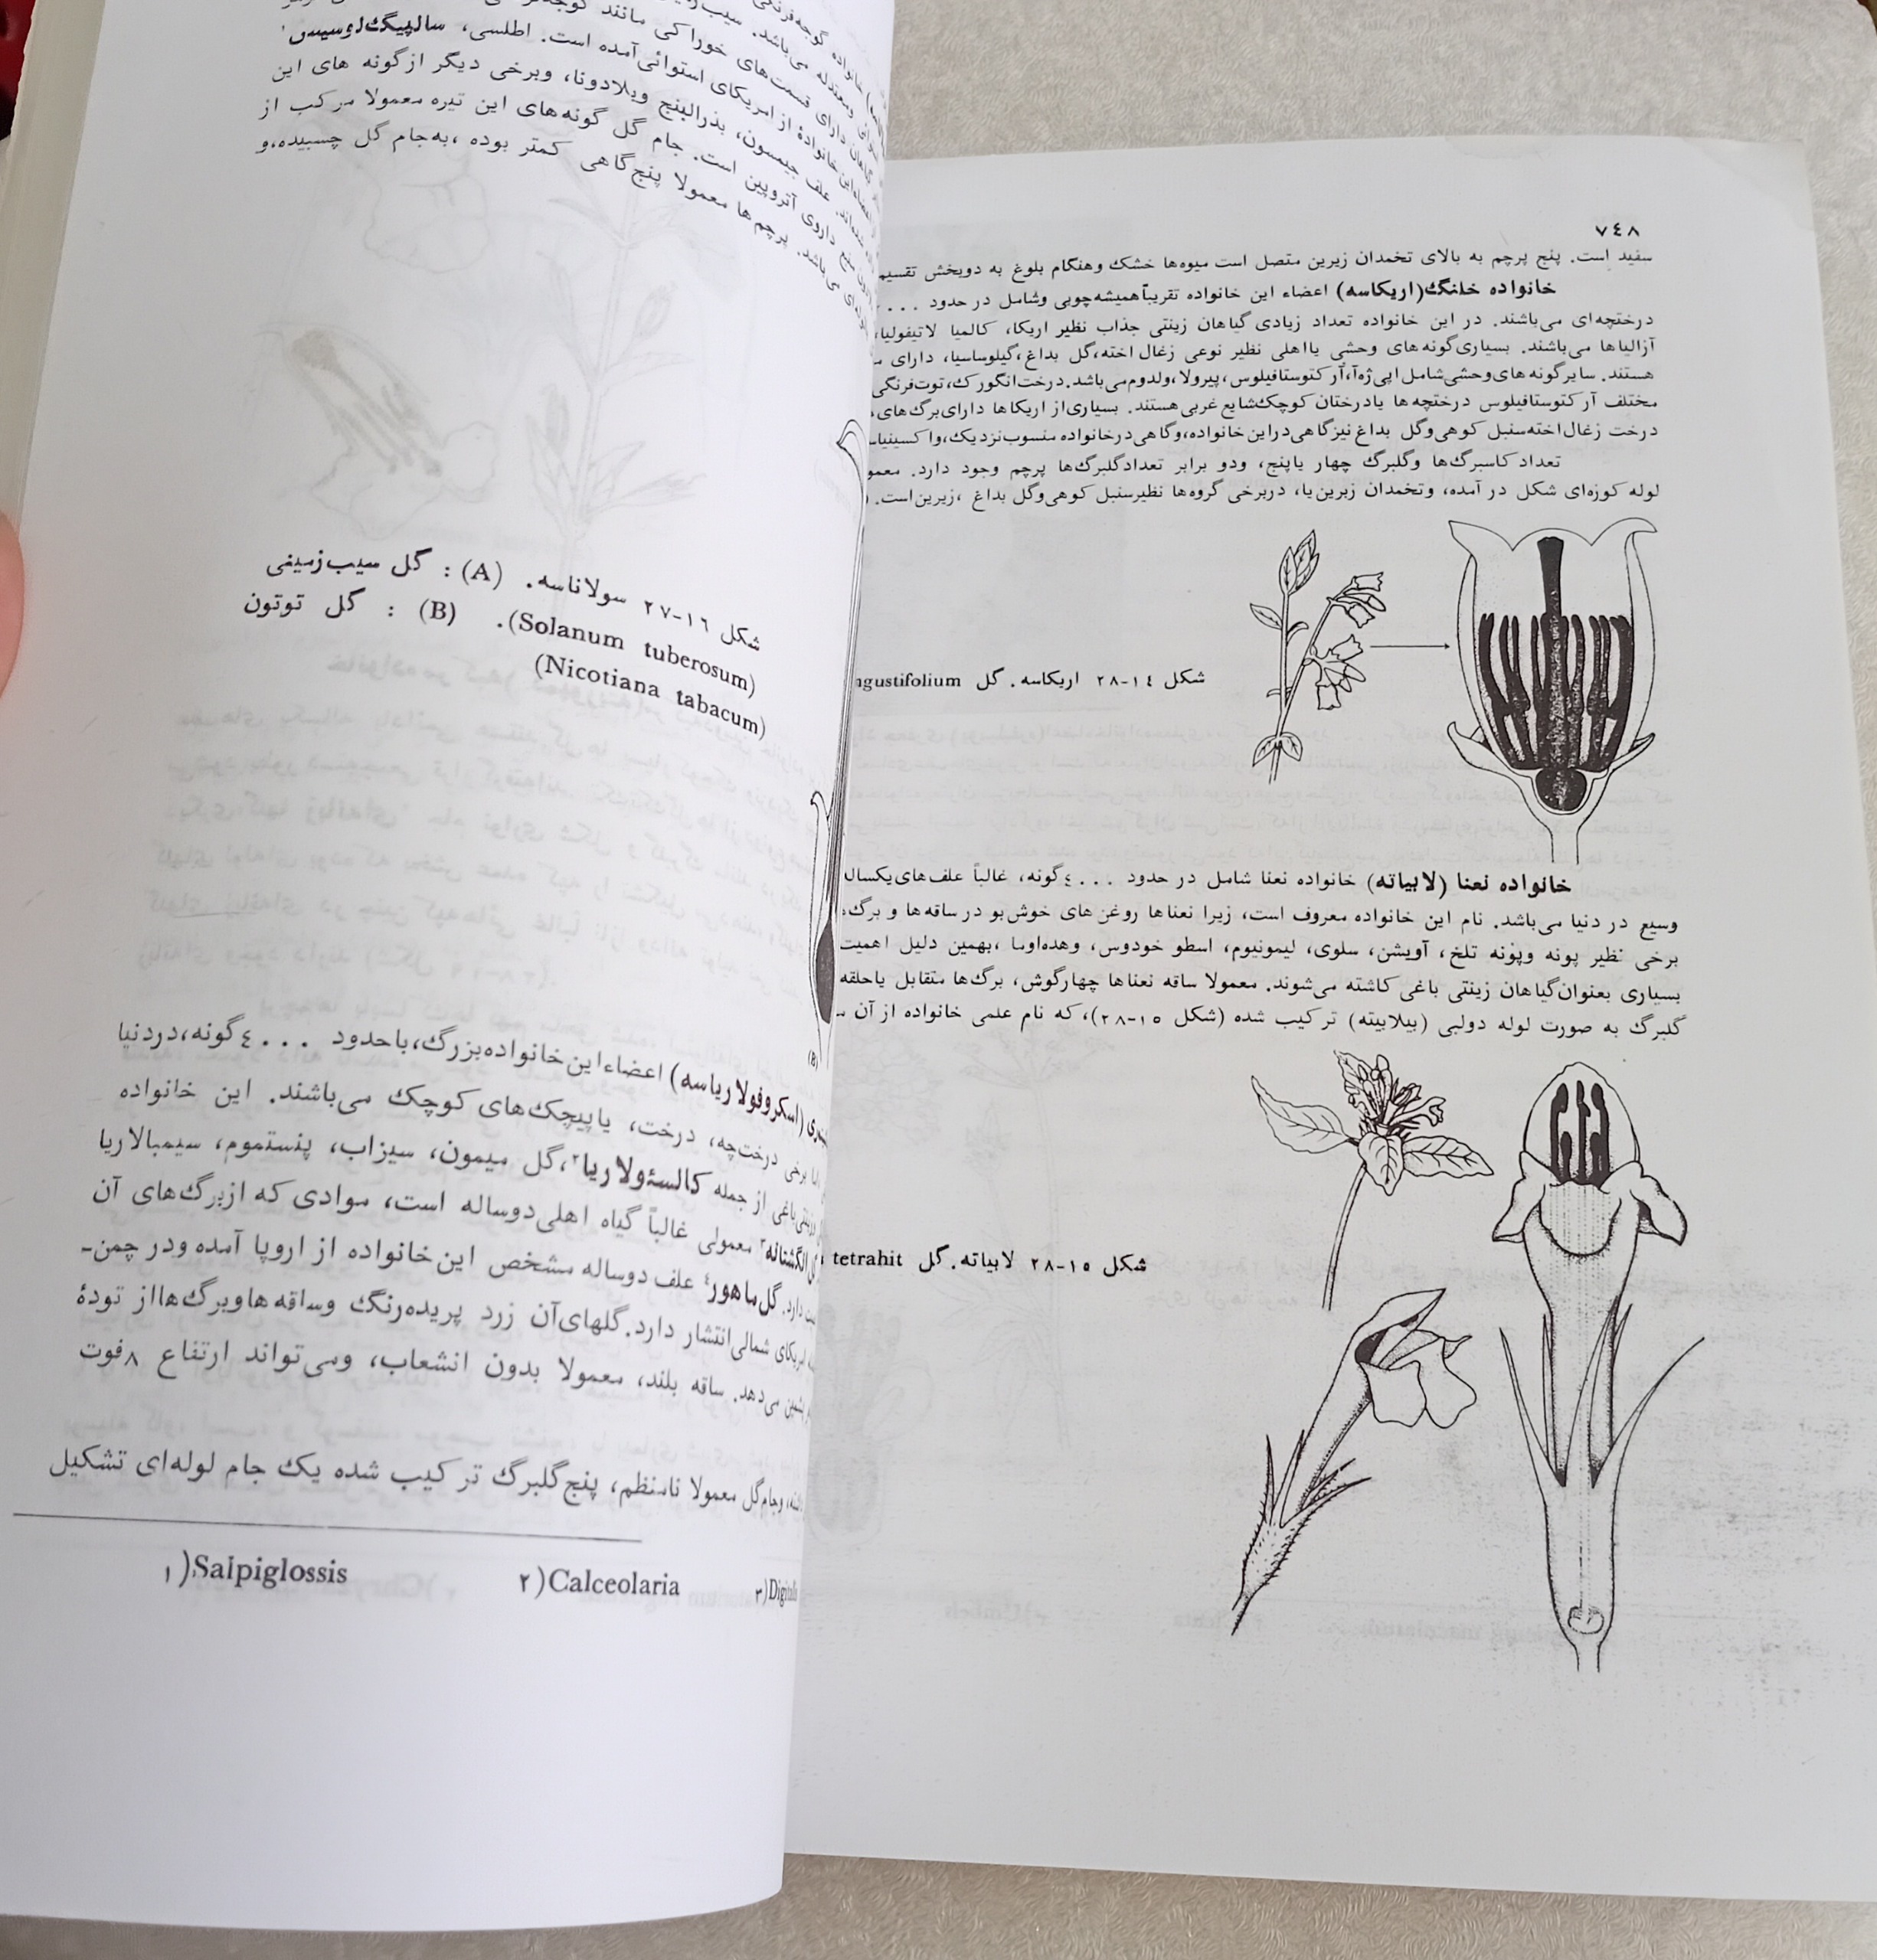 ٧٤٨
سفید است. پنج پرچم به بالای تخمدان زیرین متصل است میوه‌ها خشک وهنگام بلوغ به دوبخش تقسیم
خانواده خلنگ(اریکاسه) اعضاء این خانواده تقریباً همیشه چوبی وشامل در حدود ...
درختچه‌ای می‌باشند. در این خانواده تعداد زیادی گیاهان زینتی جذاب نظیر اریکا، کالمیا لاتیفولیا،
آزالیاها می‌باشند. بسیاری گونه‌های وحشی یااهلی نظیر نوعی زغال اخته، گل بداغ، گیلوساسیا، دارای
هستند. سایر گونه‌های وحشی شامل اپی‌ژه‌آ، آرکتوستافیلوس، پیرولا، ولدوم می‌باشد. درخت انگورک، توت‌فرنگی
مختلف آرکتوستافیلوس درختچه‌ها یادرختان کوچک شایع غربی هستند. بسیاری از اریکاها دارای برگ‌های
درخت زغال اخته سنبل کوهی وگل بداغ نیز گاهی در این خانواده، وگاهی در خانواده منسوب نزدیک، واکسینیا
تعداد کاسبرگ‌ها وگلبرگ چهار یاپنج، ودو برابر تعداد گلبرگ‌ها پرچم وجود دارد.
لوله کوزه‌ای شکل در آمده، وتخمدان زبرین یا، دربرخی گروه‌ها نظیر سنبل کوهی وگل بداغ، زیرین است.
شکل ١٤-٢٨ اریکاسه. گل ngustifolium
خانواده نعنا (لابیاته) خانواده نعنا شامل در حدود ٤٠٠٠ گونه، غالباً علف‌های یکساله
وسیع در دنیا می‌باشد. نام این خانواده معروف است، زیرا نعناها روغن‌های خوش‌بو در ساقه‌ها و برگ
برخی نظیر پونه وپونه تلخ، آویشن، سلوی، لیمونیوم، اسطو خودوس، وهده‌اوما، بهمین دلیل اهمیت
بسیاری بعنوان گیاهان زینتی باغی کاشته می‌شوند. معمولا ساقه نعناها چهارگوش، برگ‌ها متقابل یاحلقه
گلبرگ به صورت لوله دولبی (بیلابیته) ترکیب شده (شکل ١٥-٢٨)، که نام علمی خانواده از آن
شکل ١٥-٢٨ لابیاته. گل tetrahit
قسمت‌های خوراکی مانند
این خانوادهٔ از امریکای استوائی آمده است. اطلسی، سالپیگلوسیس١
علف جیمسون، بذرالبنج وبلادونا، وبرخی دیگر از گونه‌های این
داروی آتروپین است. جام گل گونه‌های این تیره معمولا مرکب از
می‌باشد. پرچم‌ها معمولا پنج گاهی کمتر بوده، به جام گل چسبیده، و
شکل ١٦-٢٧ سولاناسه. (A) : گل سیب‌زمینی
(Solanum tuberosum). (B) : گل توتون
(Nicotiana tabacum)
(B)
(اسکروفولاریاسه) اعضاء این خانواده بزرگ، با حدود ٤٠٠٠ گونه، در دنیا
برخی درخت‌چه، درخت، یاپیچک‌های کوچک می‌باشند. این خانواده
باغی از جمله کالسئولاریا٢، گل میمون، سیزاب، پنستموم، سیمبالاریا
گل انگشتانه٣ معمولی غالباً گیاه اهلی دوساله است، موادی که از برگ‌های آن
دارد. گل ماهور٤ علف دوساله مشخص این خانواده از اروپا آمده ودر چمن-
امریکای شمالی انتشار دارد. گلهای آن زرد پریده‌رنگ وساقه‌ها وبرگ‌ها از تودهٔ
می‌دهد. ساقه بلند، معمولا بدون انشعاب، ومی‌تواند ارتفاع ٨ فوت
وجام گل معمولا نامنظم، پنج گلبرگ ترکیب شده یک جام لوله‌ای تشکیل
١)Salpiglossis ٢)Calceolaria ٣)Digitalis